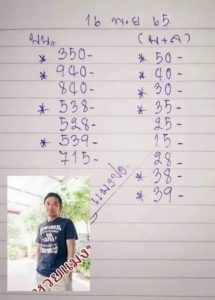 16 พ.ย 65
บน. (บ+ล)
* 350- * 50-
* 940- * 40-
840- * 30-
* 538- * 35-
528- 25-
* 539- 15-
715- 28-
* 38-
* 39-
แมงปอ